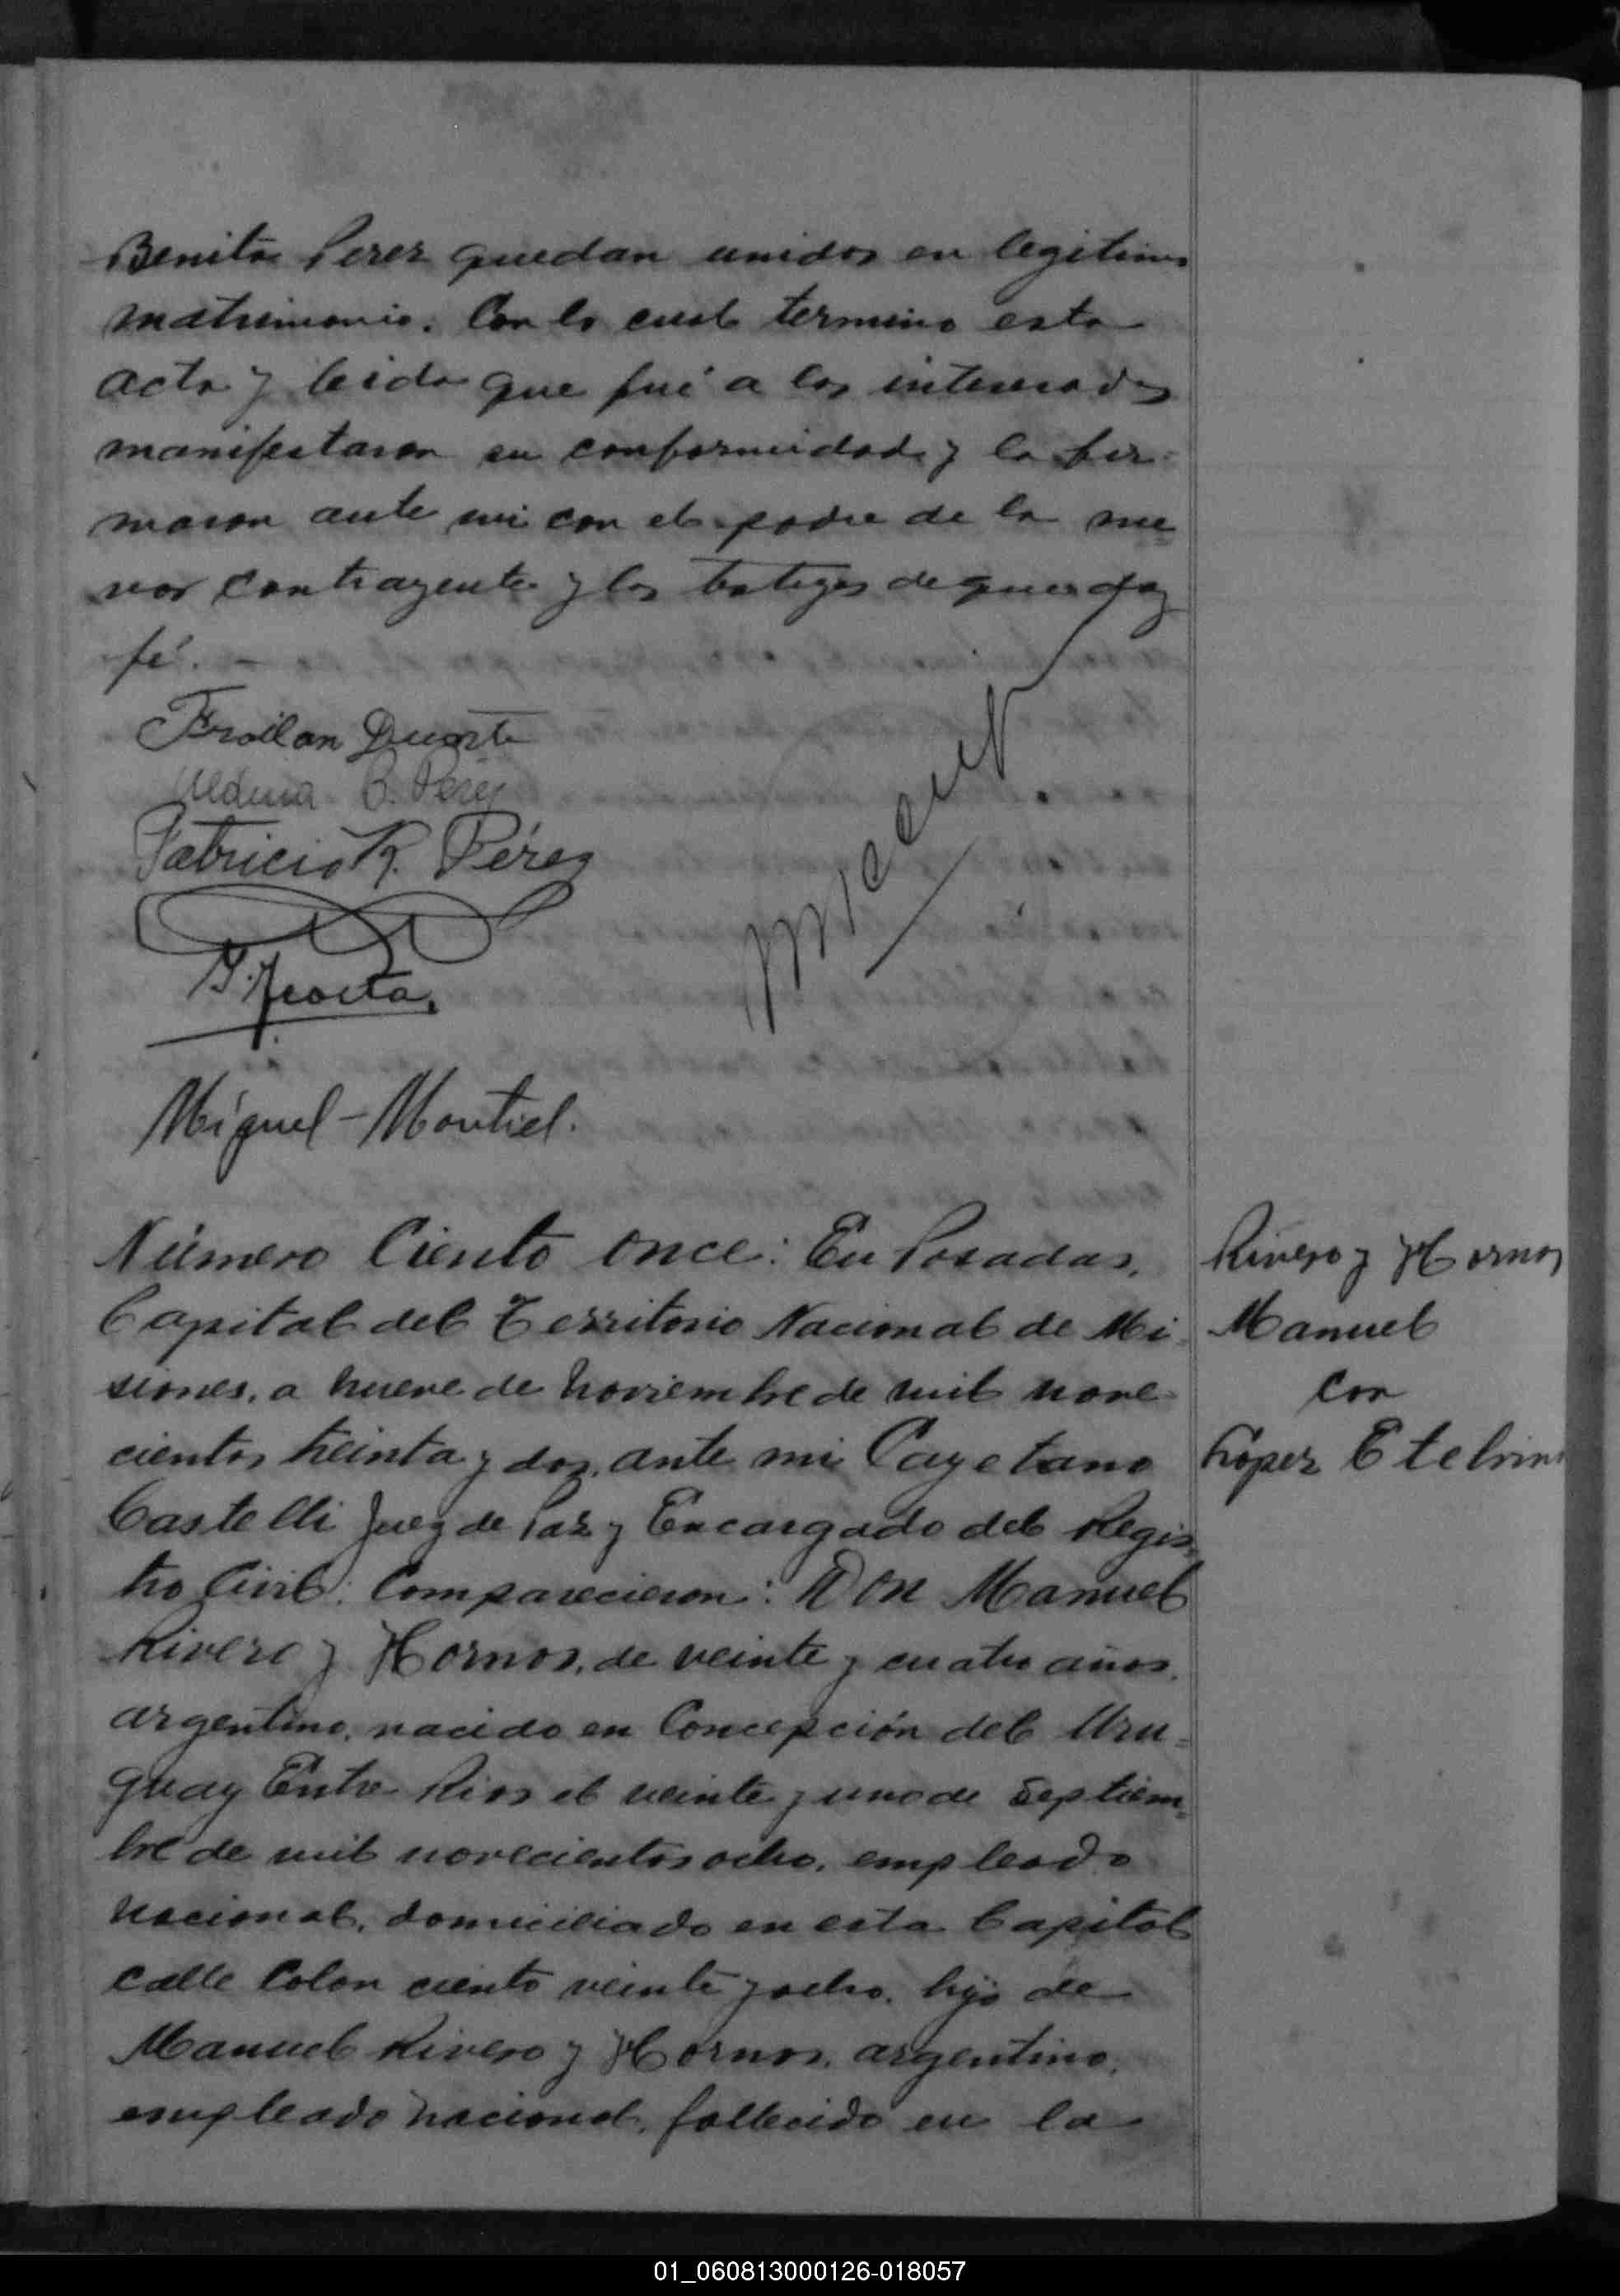 Benita Perez quedan unidos en legitimo
matrimonio. Con lo cual termino esta
acta y leida que fué a los interesados
manifestaron su conformidad y la fir-
maron ante mi con el padre de la me
nor contrayente y los testigos de que doy
fé. —
Froilan Duarte
B. Perez
Patricio R. Pérez
J. Acosta.
Miguel - Montiel.
Número Ciento once: En Posadas,
Capital del Territorio Nacional de Mi-
siones, a nueve de Noviembre de mil nove-
cientos treinta y dos, ante mi Cayetano
Castelli Juez de Paz y Encargado del Regis-
tro Civil: Comparecieron: Don Manuel
Rivero y Hornos, de veinte y cuatro años,
argentino, nacido en Concepción del Uru-
guay Entre Rios el veinte y uno de Septiem-
bre de mil novecientos ocho, empleado
nacional, domiciliado en esta Capital
calle Colon ciento veinte y ocho, hijo de
Manuel Rivero y Hornos, argentino,
empleado nacional, fallecido en la
Rivero y Hornos
Manuel
con
Lopez Etelvina
01_060813000126-018057